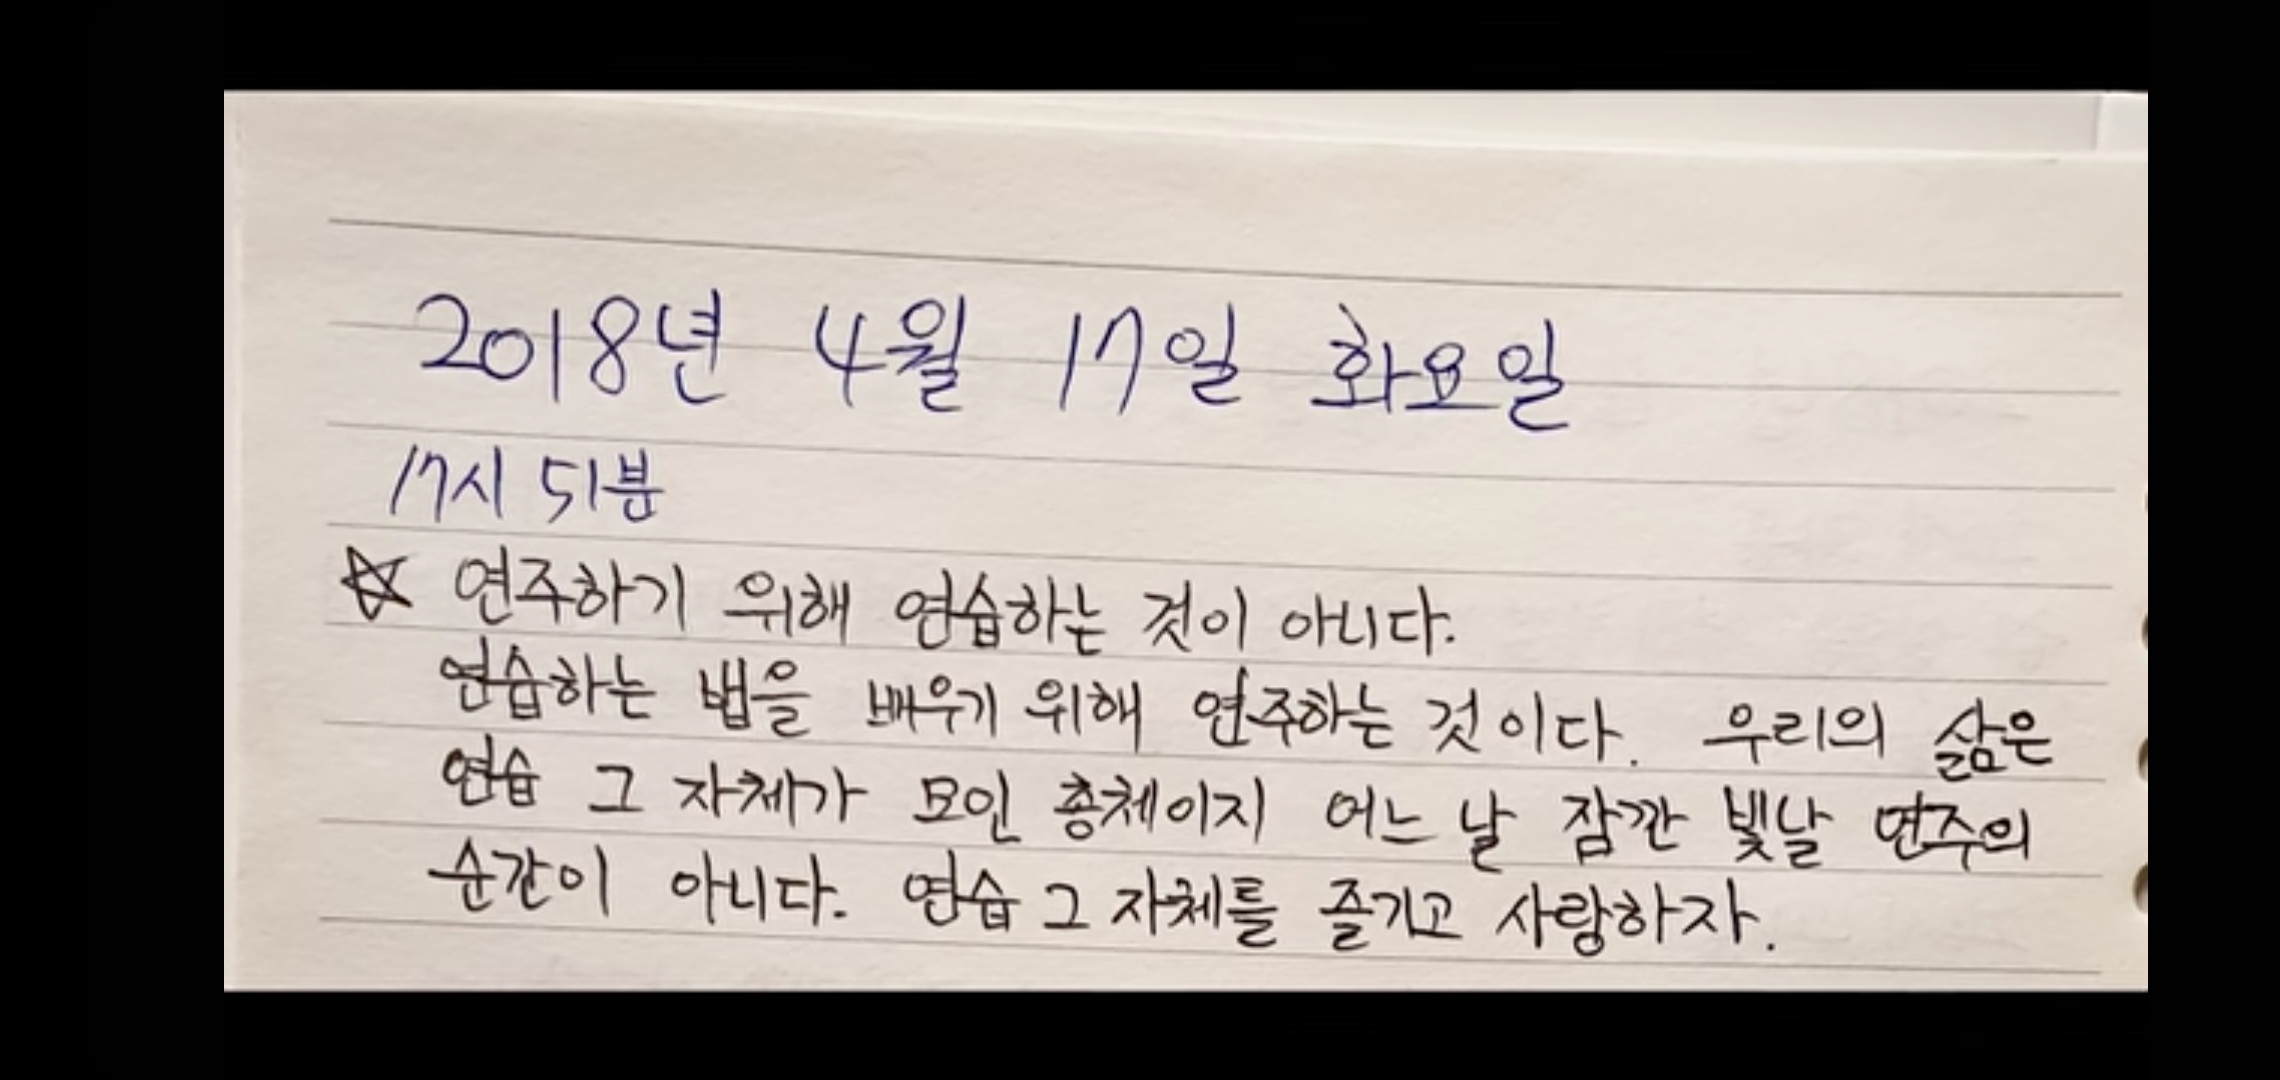 2018년 4월 17일 화요일
17시 51분
☆ 연주하기 위해 연습하는 것이 아니다.
연습하는 법을 배우기 위해 연주하는 것이다. 우리의 삶은
연습 그 자체가 모인 총체이지 어느 날 잠깐 빛날 연주의
순간이 아니다. 연습 그 자체를 즐기고 사랑하자.